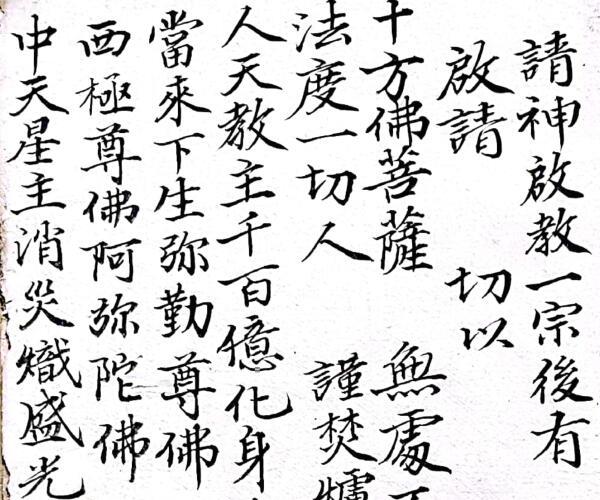 請神啟教一宗後有
啟請 切以
十方佛菩薩 無處不
法度一切人 謹焚爐
人天教主千百億化身
當來下生弥勤尊佛
西極尊佛阿弥陀佛
中天星主消災熾盛光